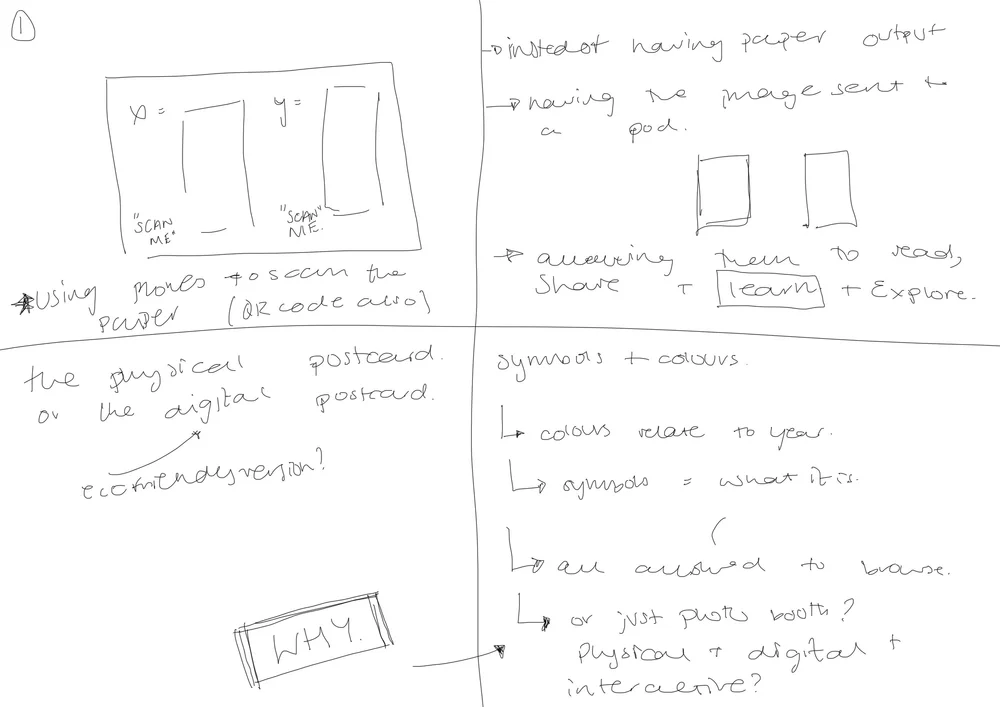 1
x =
y =
"SCAN
ME"
"SCAN"
ME.
using phones to scan the
paper (QR code also)
insted of having paper output
having the image sent to
a pod.
allowing them to read,
share + learn + Explore.
the physical postcard.
or the digital postcard.
ecofriendly version?
WHY.
symbols + colours.
colours relate to year.
symbols = what it is.
all allowed to browse.
or just photo booth?
Physical + digital +
interactive?